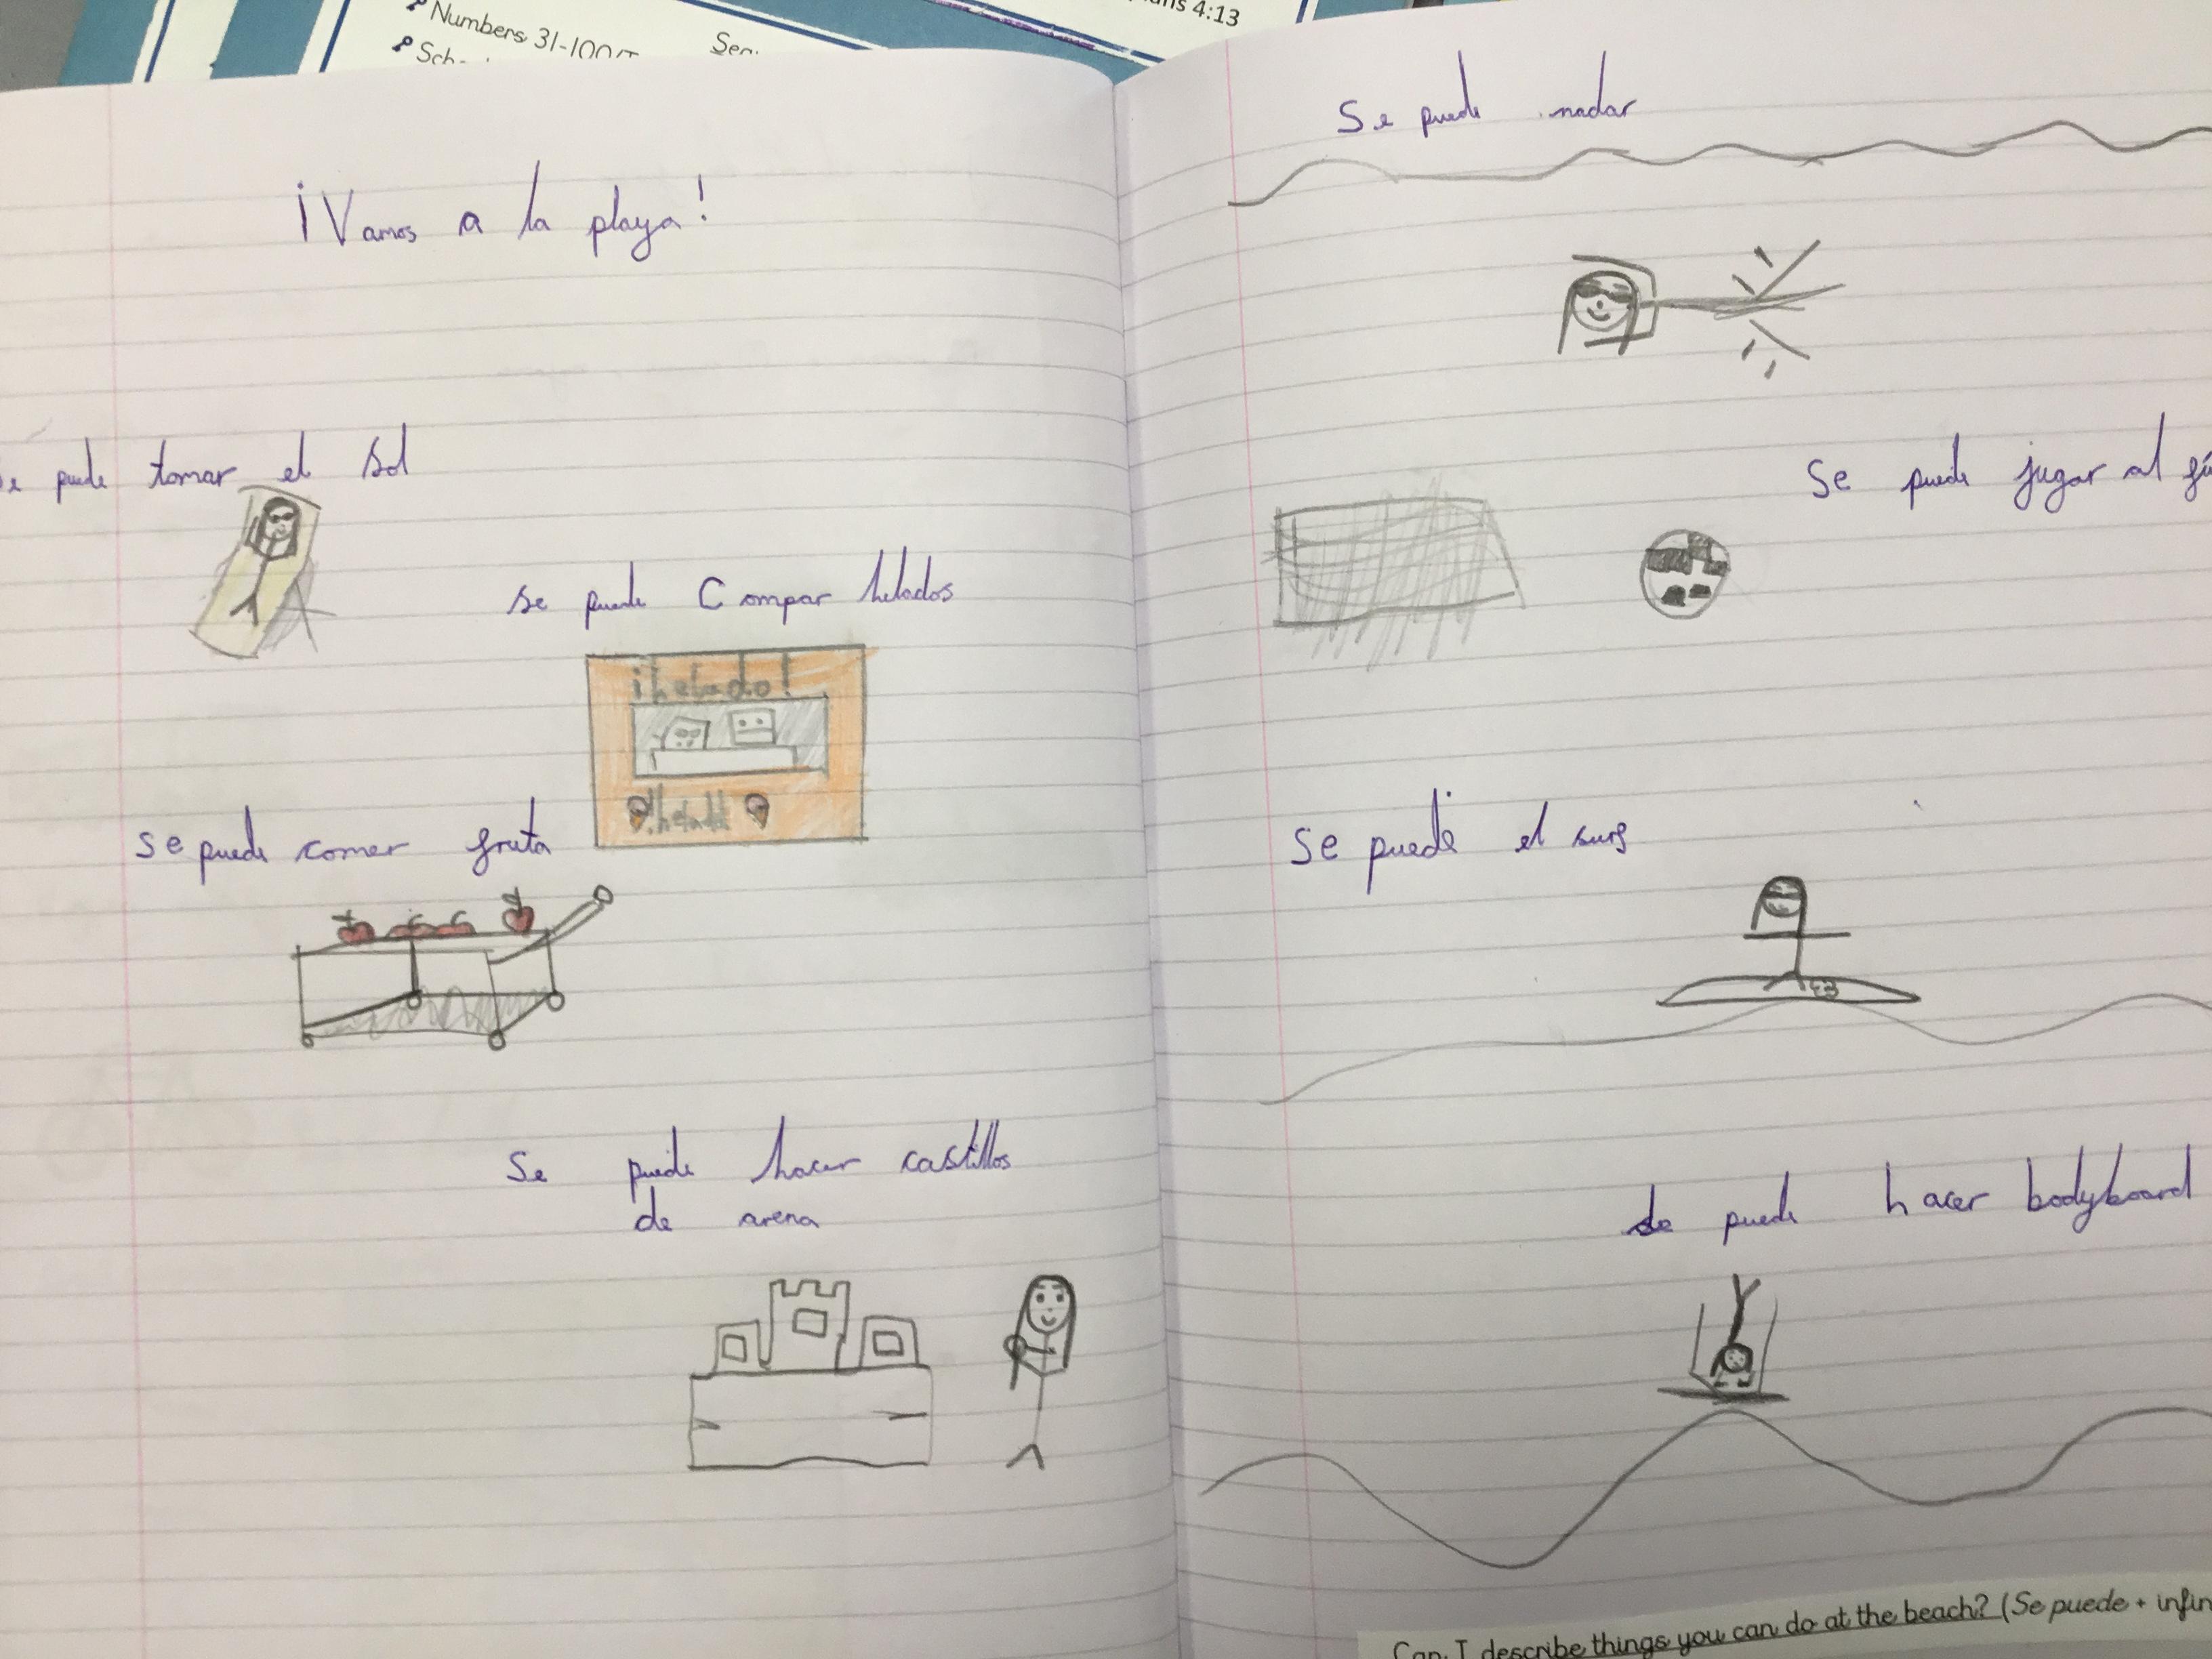 Numbers 31-100
4:13
¡Vamos a la playa!
puede tomar el sol
se puede Compar helados
¡helado!
se puede comer fruta
Se puede hacer castillos
de arena
Se puede nadar
Se puede jugar al
Se puede el surf
se puede hacer bodyboard
Can I describe things you can do at the beach? (Se puede + infin